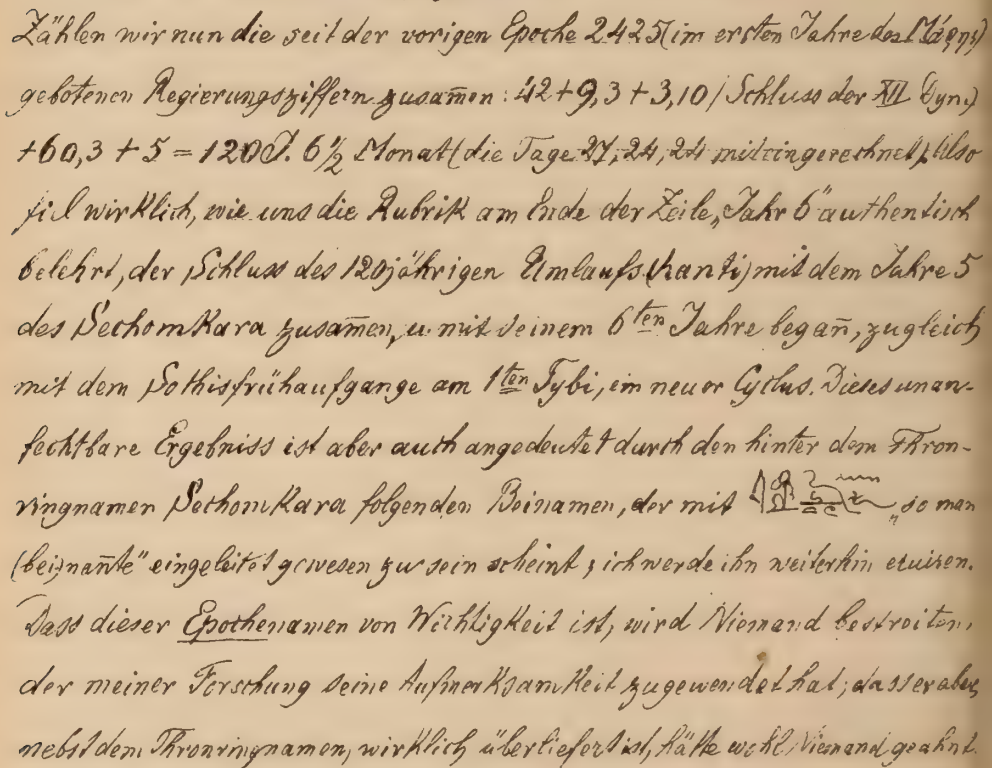 Zählen wir nun die seit der vorigen Epoche 2425 (im ersten Jahre des
gebotenen Regierungsziffern zusam̄en: 42 + 9,3 + 3,10 (Schluss der XII Dyn.)
+ 60,3 + 5 = 120 J. 6½ Monat (die Tage 27, 24, 24 miteingerechnet). Also
fiel wirklich, wie uns die Rubrik am Ende der Zeile „Jahr 6" authentisch
belehrt, der Schluss des 120jährigen Umlaufs (hanti) mit dem Jahre 5
des Sechomkara zusam̄en, u. mit seinem 6ten Jahre began̄, zugleich
mit dem Sothisfrühaufgange am 1ten Tybi, ein neuer Cyclus. Dieses unan-
fechtbare Ergebniss ist aber auch angedeutet durch den hinter dem Thron-
ringnamen Sechomkara folgenden Beinamen, der mit „so man
(bei)nan̄te" eingeleitet gewesen zu sein scheint; ich werde ihn weiterhin eruiren.
Dass dieser Epochenamen von Wichtigkeit ist, wird Niemand bestreiten,
der meiner Forschung seine Aufmerksamkeit zugewendet hat; dass er aber,
nebst dem Thronringnamen, wirklich überliefert ist, hätte wohl Niemand geahnt.